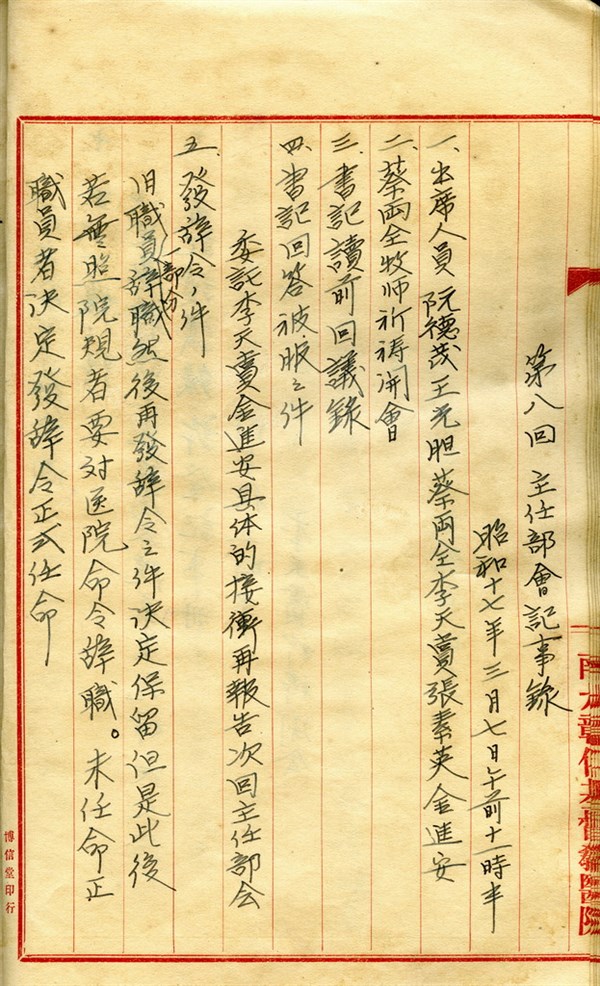 第八回 主任部會記事錄
昭和十七年三月七日午前十一時半
一、出席人員 阮德茂 王光胆 蔡両全 李天賣 張素英 金進安
二、蔡両全牧师祈祷開會
三、書記讀前回議錄
四、書記回答被服之件
委託李天賣金進安具体的接衝再報告次回主任部会
五、發辞令之件
旧職員一部分辞職然後再發辞令之件決定保留但是此後
若無照院規者要対医院命令辞職。未任命正
職員者決定發辞令正式任命
彰化基督教醫院
博信堂印行